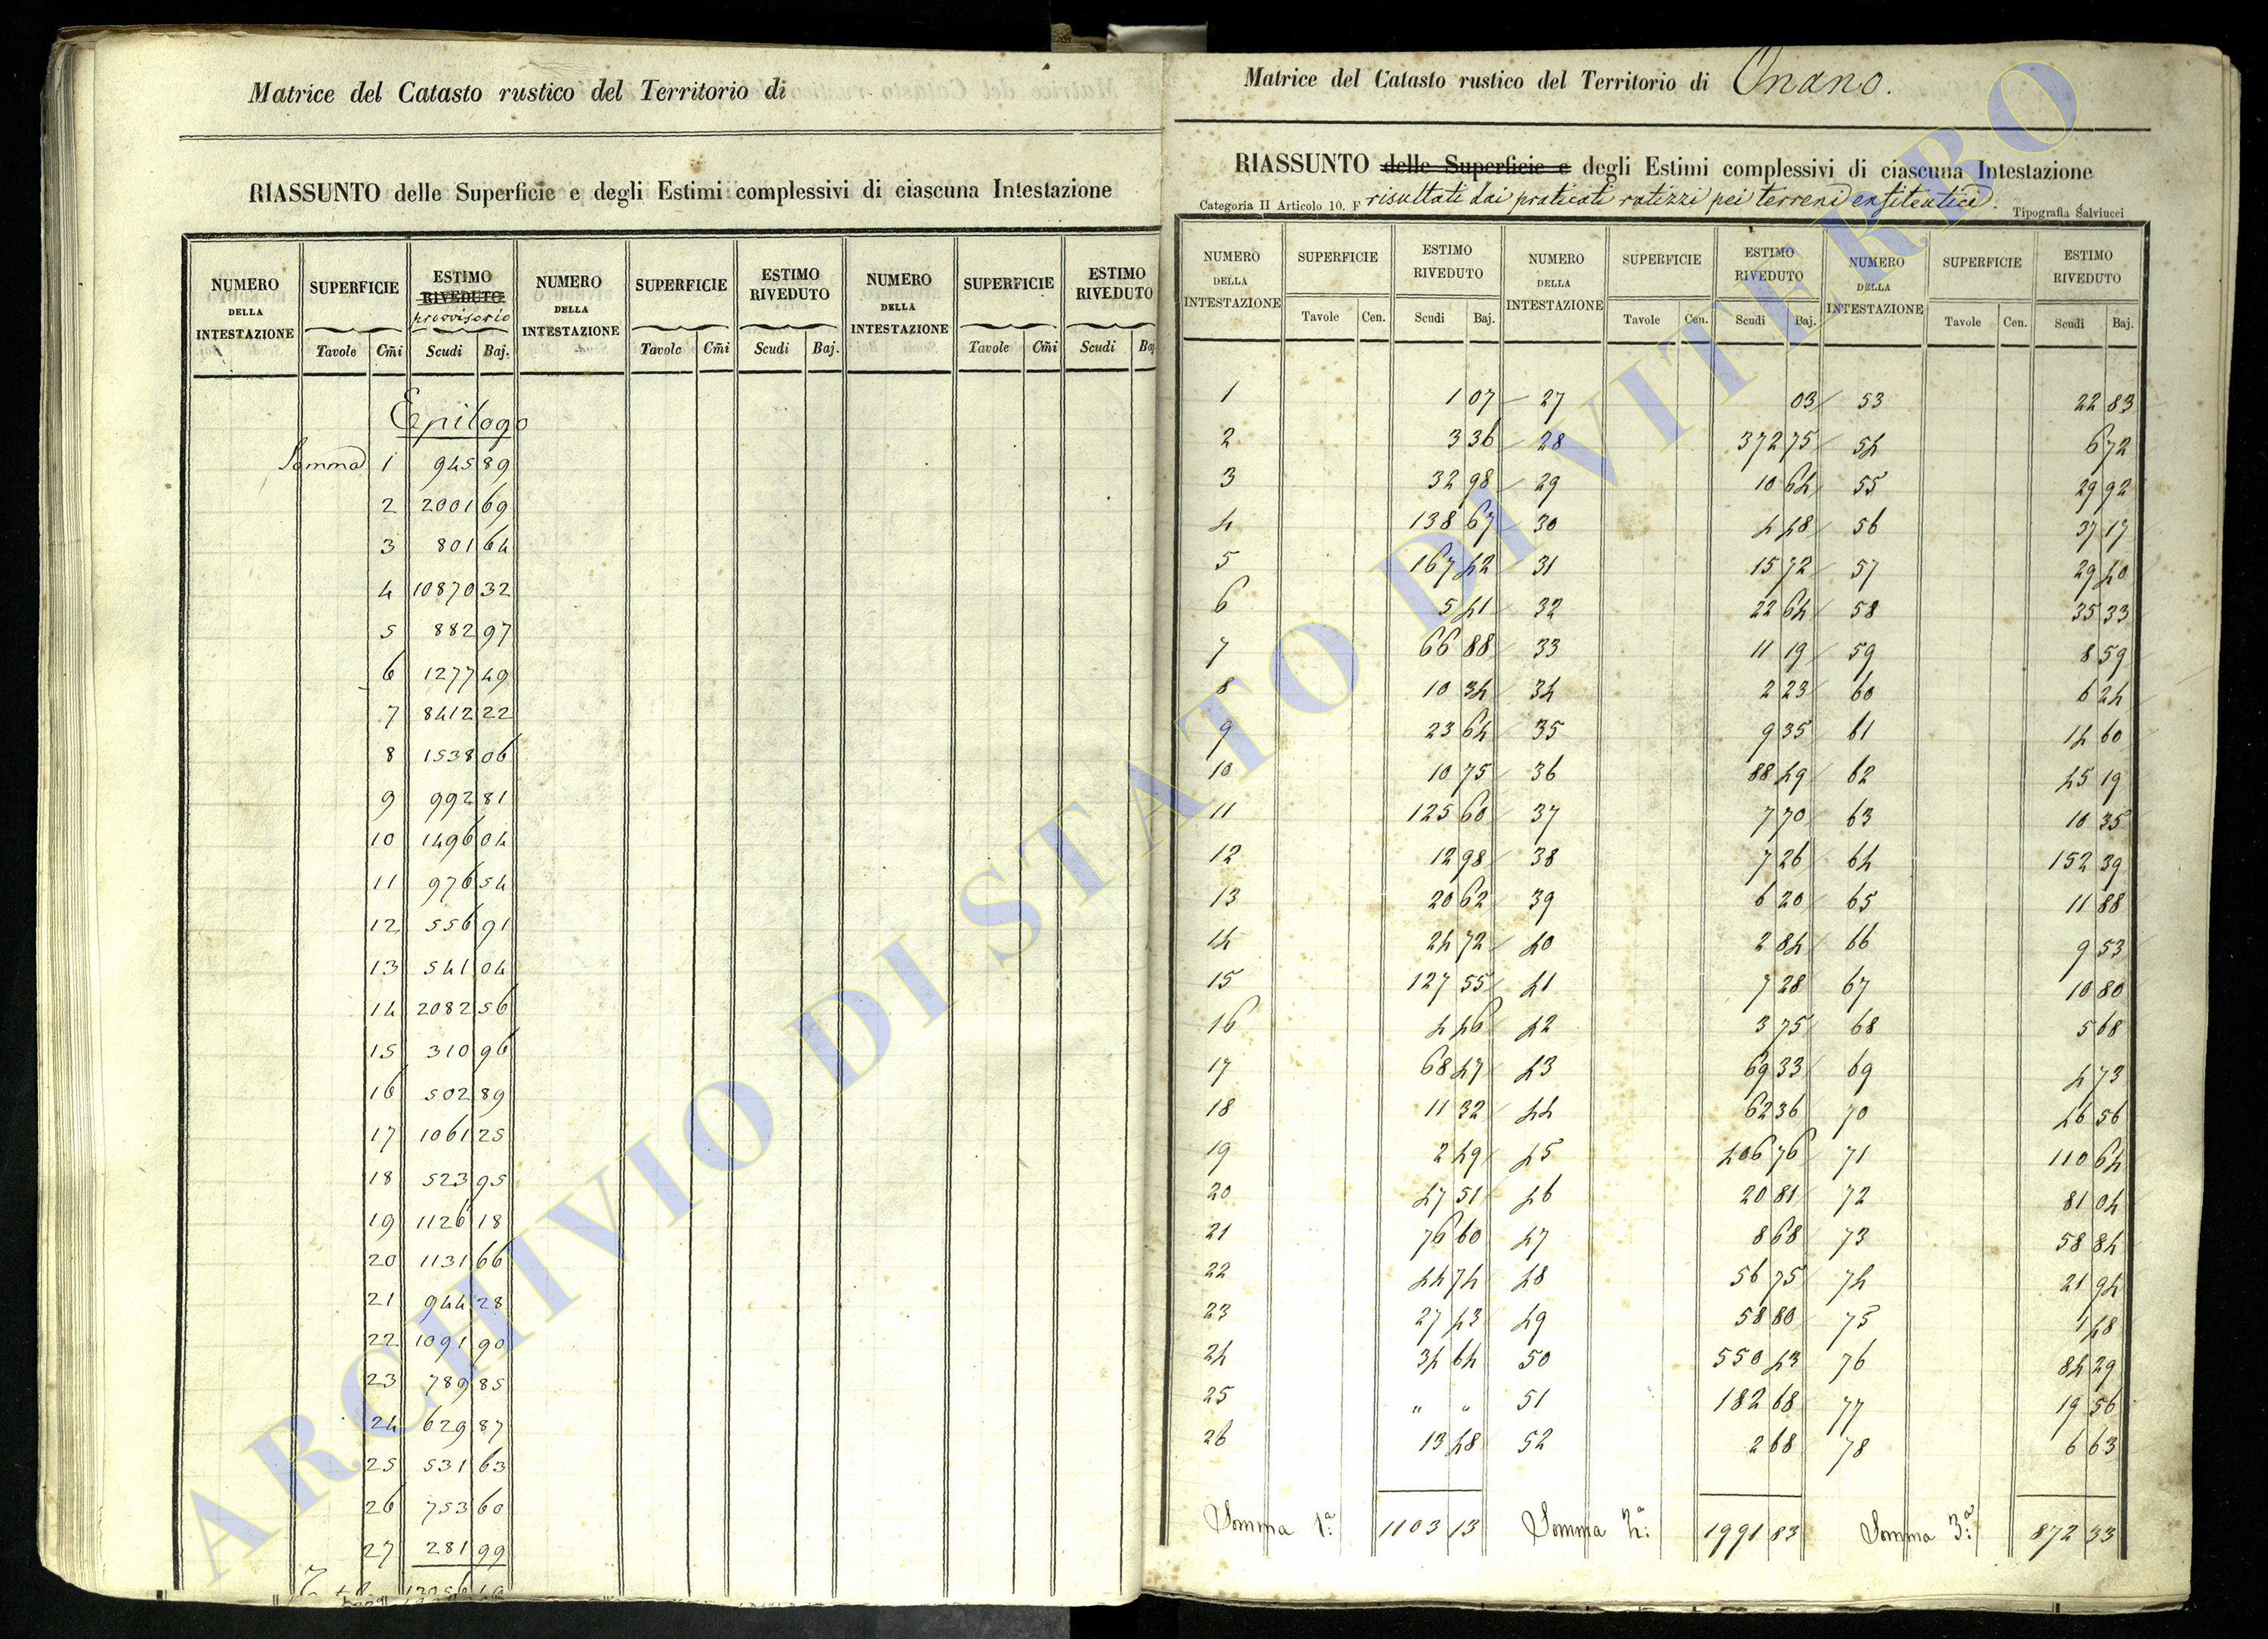 Matrice del Catasto rustico del Territorio di
RIASSUNTO delle Superficie e degli Estimi complessivi di ciascuna Intestazione
NUMERO DELLA INTESTAZIONE SUPERFICIE ESTIMO RIVEDUTO provvisorio NUMERO DELLA INTESTAZIONE SUPERFICIE ESTIMO RIVEDUTO NUMERO DELLA INTESTAZIONE SUPERFICIE ESTIMO RIVEDUTO
Tavole Cm̃i Scudi Baj. Tavole Cm̃i Scudi Baj. Tavole Cm̃i Scudi Baj
Epilogo
Somma 1 945 89
2 2001 69
3 801 64
4 10870 32
5 882 97
6 1277 49
7 8412 22
8 1538 06
9 992 81
10 1496 04
11 976 54
12 556 91
13 541 04
14 2082 56
15 310 96
16 502 89
17 1061 25
18 523 95
19 1126 18
20 1131 66
21 944 28
22 1091 90
23 789 85
24 629 87
25 531 63
26 753 60
27 281 99
Matrice del Catasto rustico del Territorio di Onano.
RIASSUNTO delle Superficie e degli Estimi complessivi di ciascuna Intestazione
Categoria II Articolo 10. F risultati dai praticati ratizzi pei terreni enfiteutici. Tipografia Salviucci
NUMERO DELLA INTESTAZIONE SUPERFICIE ESTIMO RIVEDUTO NUMERO DELLA INTESTAZIONE SUPERFICIE ESTIMO RIVEDUTO NUMERO DELLA INTESTAZIONE SUPERFICIE ESTIMO RIVEDUTO
Tavole Cen. Scudi Baj. Tavole Cen. Scudi Baj. Tavole Cen. Scudi Baj.
1 1 07 27 03 53 22 83
2 3 36 28 372 75 54 6 72
3 32 98 29 10 64 55 29 92
4 138 67 30 4 48 56 37 17
5 167 42 31 15 72 57 29 40
6 5 41 32 22 64 58 35 33
7 66 88 33 11 19 59 8 59
8 10 34 34 2 23 60 6 24
9 23 64 35 9 35 61 14 60
10 10 75 36 88 49 62 45 19
11 125 60 37 7 70 63 10 35
12 12 98 38 7 26 64 152 39
13 20 62 39 6 20 65 11 88
14 24 72 40 2 84 66 9 53
15 127 55 41 7 28 67 10 80
16 4 46 42 3 75 68 5 68
17 68 47 43 69 33 69 4 73
18 11 32 44 62 36 70 46 56
19 2 49 45 406 76 71 110 64
20 47 51 46 20 81 72 81 04
21 76 60 47 8 68 73 58 84
22 44 74 48 56 75 74 21 94
23 27 43 49 58 80 75 1 48
24 34 64 50 550 43 76 84 29
25 " " 51 182 68 77 19 56
26 13 48 52 2 68 78 6 63
Somma 1.ª 1103 13 Somma 2.ª 1991 83 Somma 3.ª 872 33
ARCHIVIO DI STATO DI VITERBO